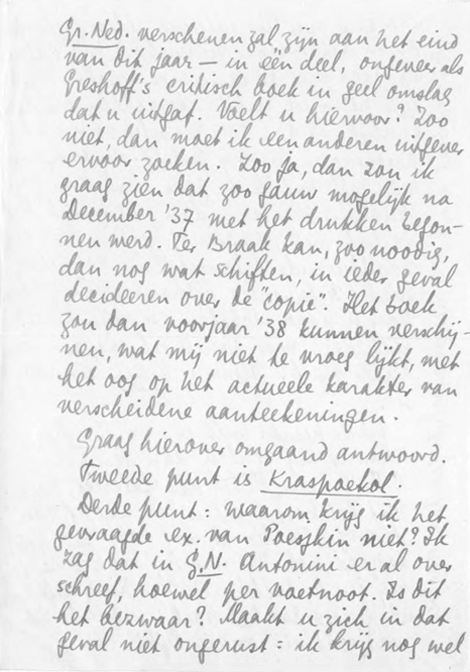 Gr. Ned. verschenen zal zijn aan het eind
van dit jaar — in één deel, ongeveer als
Greshoff's critisch boek in geel omslag
dat u uitgaf. Voelt u hiervoor? Zoo
niet, dan moet ik een anderen uitgever
ervoor zoeken. Zoo ja, dan zou ik
graag zien dat zoo gauw mogelijk na
December '37 met het drukken begon-
nen werd. Ter Braak kan, zoo noodig,
dan nog wat schiften, in ieder geval
decideeren over de "copie". Het boek
zou dan voorjaar '38 kunnen verschij-
nen, wat mij niet te vroeg lijkt, met
het oog op het actueele karakter van
verscheidene aanteekeningen.
Graag hierover omgaand antwoord.
Tweede punt is Kraspoekol.
Derde punt: waarom krijg ik het
gevraagde ex. van Poesjkin niet? Ik
zag dat in G.N. Antonini er al over
schreef, hoewel per voetnoot. Is dit
het bezwaar? Maakt u zich in dat
geval niet ongerust: ik krijg nog wel